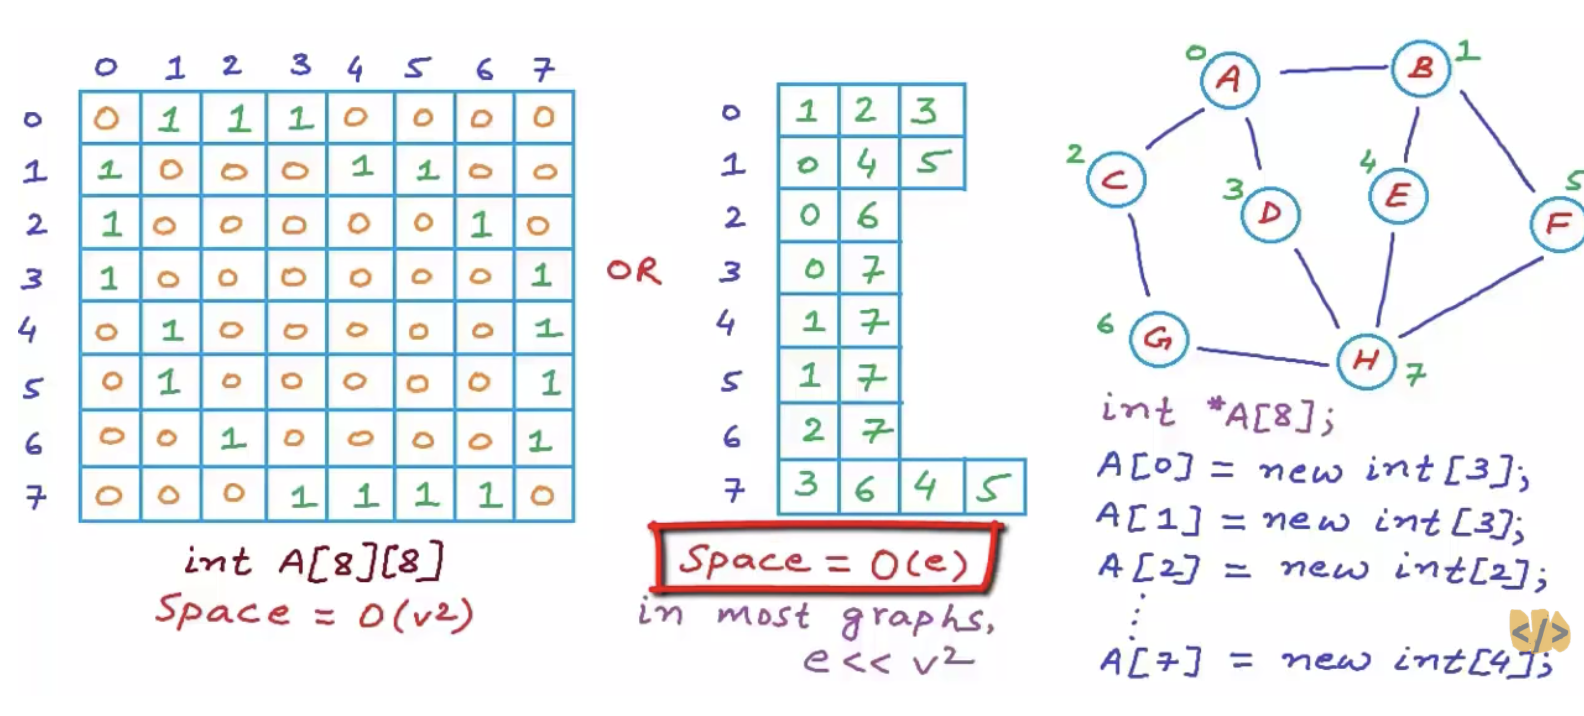 0 1 2 3 4 5 6 7
0 0 1 1 1 0 0 0 0
1 1 0 0 0 1 1 0 0
2 1 0 0 0 0 0 1 0
3 1 0 0 0 0 0 0 1
4 0 1 0 0 0 0 0 1
5 0 1 0 0 0 0 0 1
6 0 0 1 0 0 0 0 1
7 0 0 0 1 1 1 1 0
int A[8][8]
Space = O(v2)
OR
0 1 2 3
1 0 4 5
2 0 6
3 0 7
4 1 7
5 1 7
6 2 7
7 3 6 4 5
Space = O(e)
in most graphs,
e << v2
0 A
B 1
2 C
3 D
4 E
5 F
6 G
H 7
int *A[8];
A[0] = new int[3];
A[1] = new int[3];
A[2] = new int[2];
⋮
A[7] = new int[4];
</>